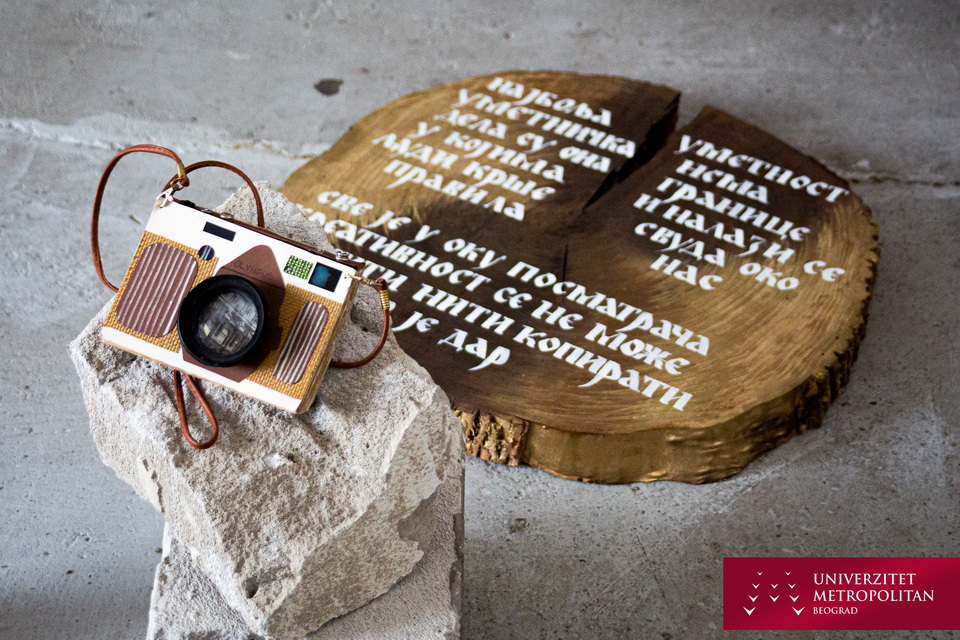 најбоља
уметничка
дела су она
у којима
људи крше
правила
уметност
нема
границе
и налази се
свуда око
нас
све је у оку посматрача
креативност се не може
нити копирати
је дар
UNIVERZITET
METROPOLITAN
BEOGRAD